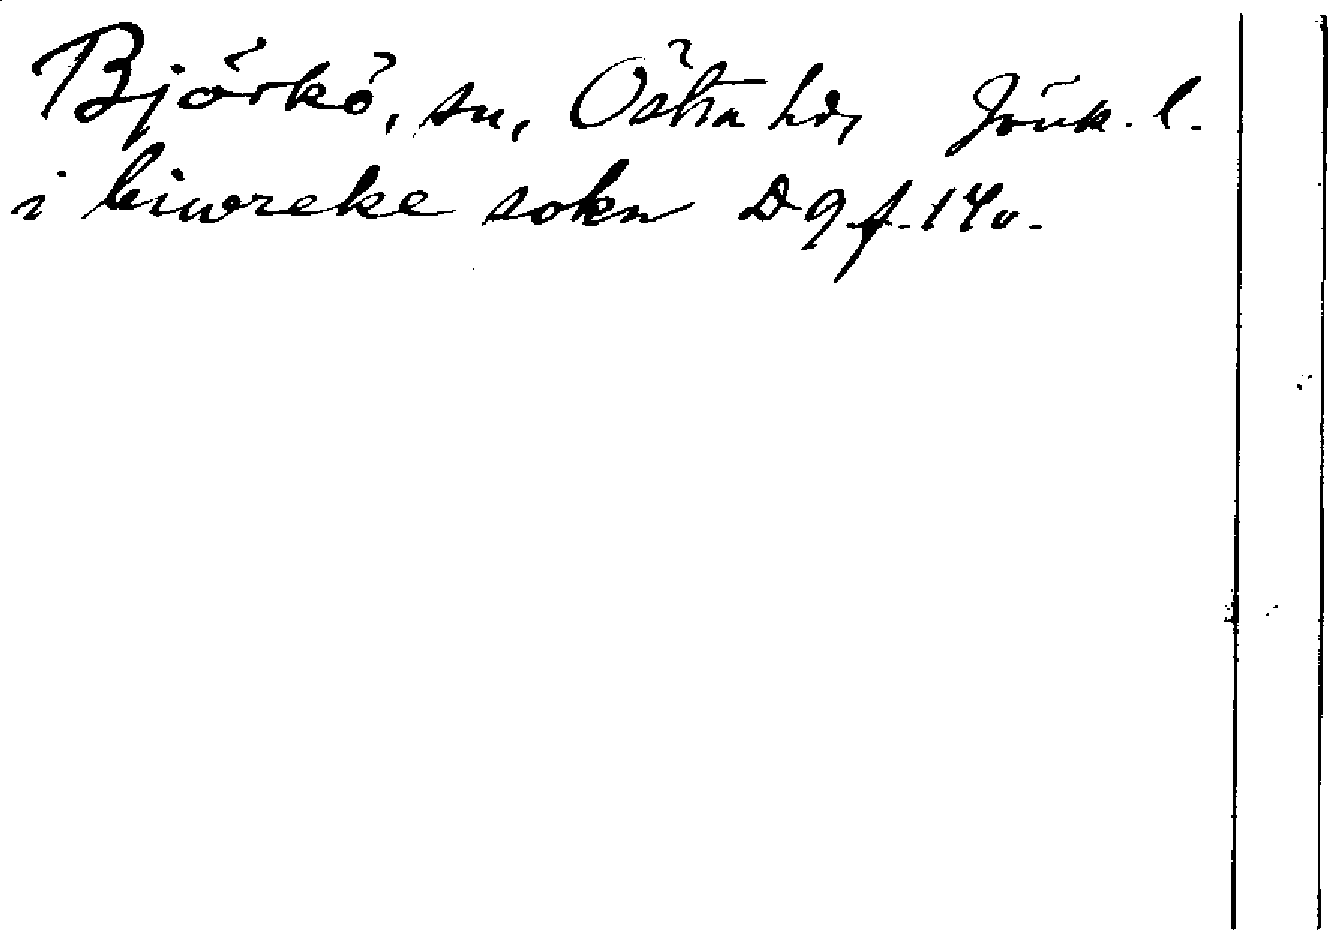 Björkö, sn, Östra hd, Jönk. l.
i biwreke sokn D 9 f. 14v.